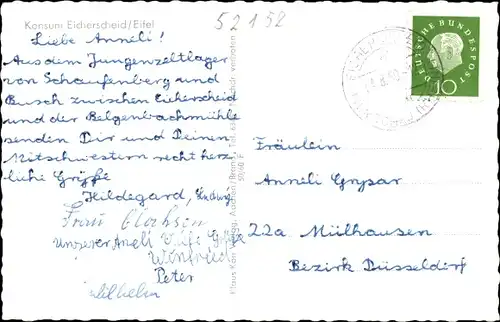 Konsum Eicherscheid/Eifel
52152
Liebe Anneli!
Aus dem Jungenzeltlager
von Schaufenberg und
Busch zwischen Eicherscheid
und der Belgenbachmühle
senden Dir und Deinen
Mitschwestern recht herz
liche Grüße
Hildegard, Ludwig
Frau
Unserer Aneli Grüße
Winfried
Peter
Wilhelm
DEUTSCHE BUNDESPOST
10
Fräulein
Anneli Grysar
22a Mülhausen
Bezirk Düsseldorf